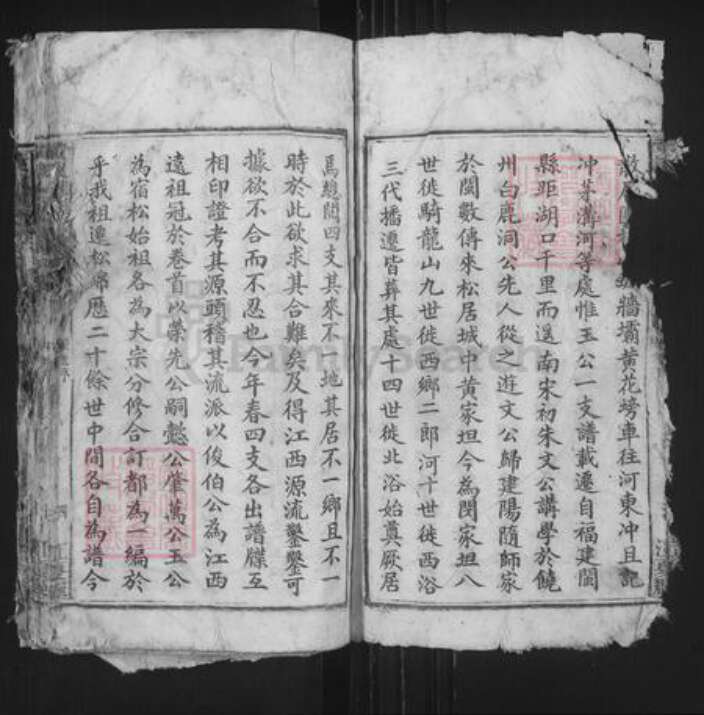 牆壩黄花塝車往河東冲且記
冲茅溝河等處惟玉公一支譜載遷自福建閩
縣距湖口千里而遥南宋初朱文公講學於饒
州白鹿洞公先人從之遊文公歸建陽隨師家
於閩數傳來松居城中黄家坦今為閔家坦八
世徙騎龍山九世徙西鄉二郎河十世徙西浴
三代播遷皆葬其處十四世徙北浴始奠厥居
馬總閱四支其來不一地其居不一鄉且不一
時於此欲求其合難矣及得江西源流鑿鑿可
據欲不合而不忍也今年春四支各出譜牒互
相印證考其源頭稽其流派以俊伯公為江西
遠祖冠於卷首以榮先公嗣懿公肇萬公玉公
為宿松始祖各為大宗分修合訂都為一編於
乎我祖遷松綿歷二十餘世中間各自為譜今
FamilySearch